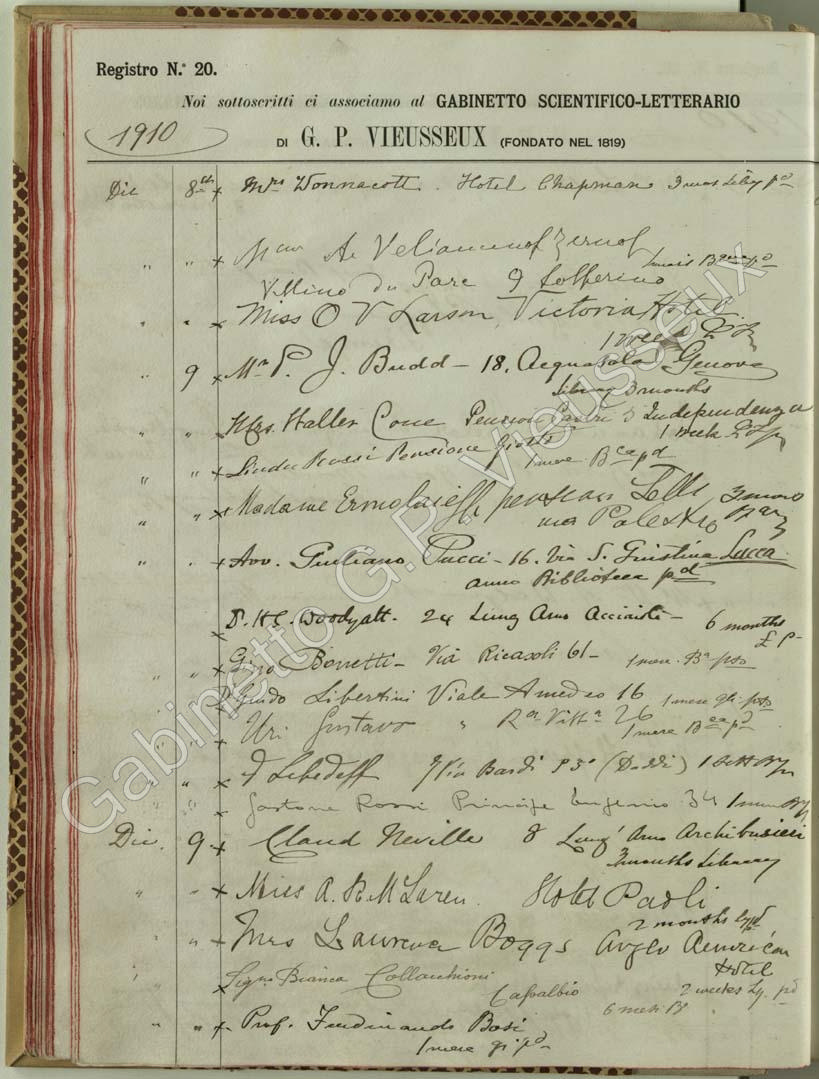 Registro N.º 20.
Noi sottoscritti ci associamo al GABINETTO SCIENTIFICO-LETTERARIO
1910
DI G. P. VIEUSSEUX (FONDATO NEL 1819)
Dic 8 x Mrs Wonnacott. Hotel Chapman 3 mos Liby pd
" " x A. Veliaminof Zernof
Villino du Parc 9 Solferino
" " x Miss O V Larson, Victoria Hotel
1 week
" 9 x Mr P. J. Budd - 18. Acquasola Genova
Library 3 months
" " x Mrs. Haller Cone Pension 5 Independenza
1 week
" " x Rossi Pensione Giotti
1 mese Bca pd
" " x Madame Ermolaieff pension
via Palestro
" " x Avv. Giuliano Pucci - 16. Via S. Giustina Lucca.
anno Biblioteca pd
x Woodyatt. 24 Lung Arno Acciaioli - 6 months
" " x Gino Bonetti - Via Ricasoli 61 - 1 mese. Ba
x Guido Libertini Viale Amedeo 16 1 mese
" " x Uri Gustavo " Ra Vitta 26
1 mese Bca pd
" " x Lebedeff Via Bardi P3º (Daddi) 1
x Gastone Rossi Principe Eugenio 34 1
Dic. 9 x Claud Neville 8 Lung' Arno Archibusieri
3 months Library
" " x Miss A. R. McLaren. Hotel Paoli
2 months
" " x Mrs Laurena Boggs Anglo American
Hotel
" " x Bianca Collacchioni 2 weeks pd
Capalbio
6 mesi B
" " x Prof. Ferdinando Bosi
1 mese pd
Gabinetto G.P. Vieusseux